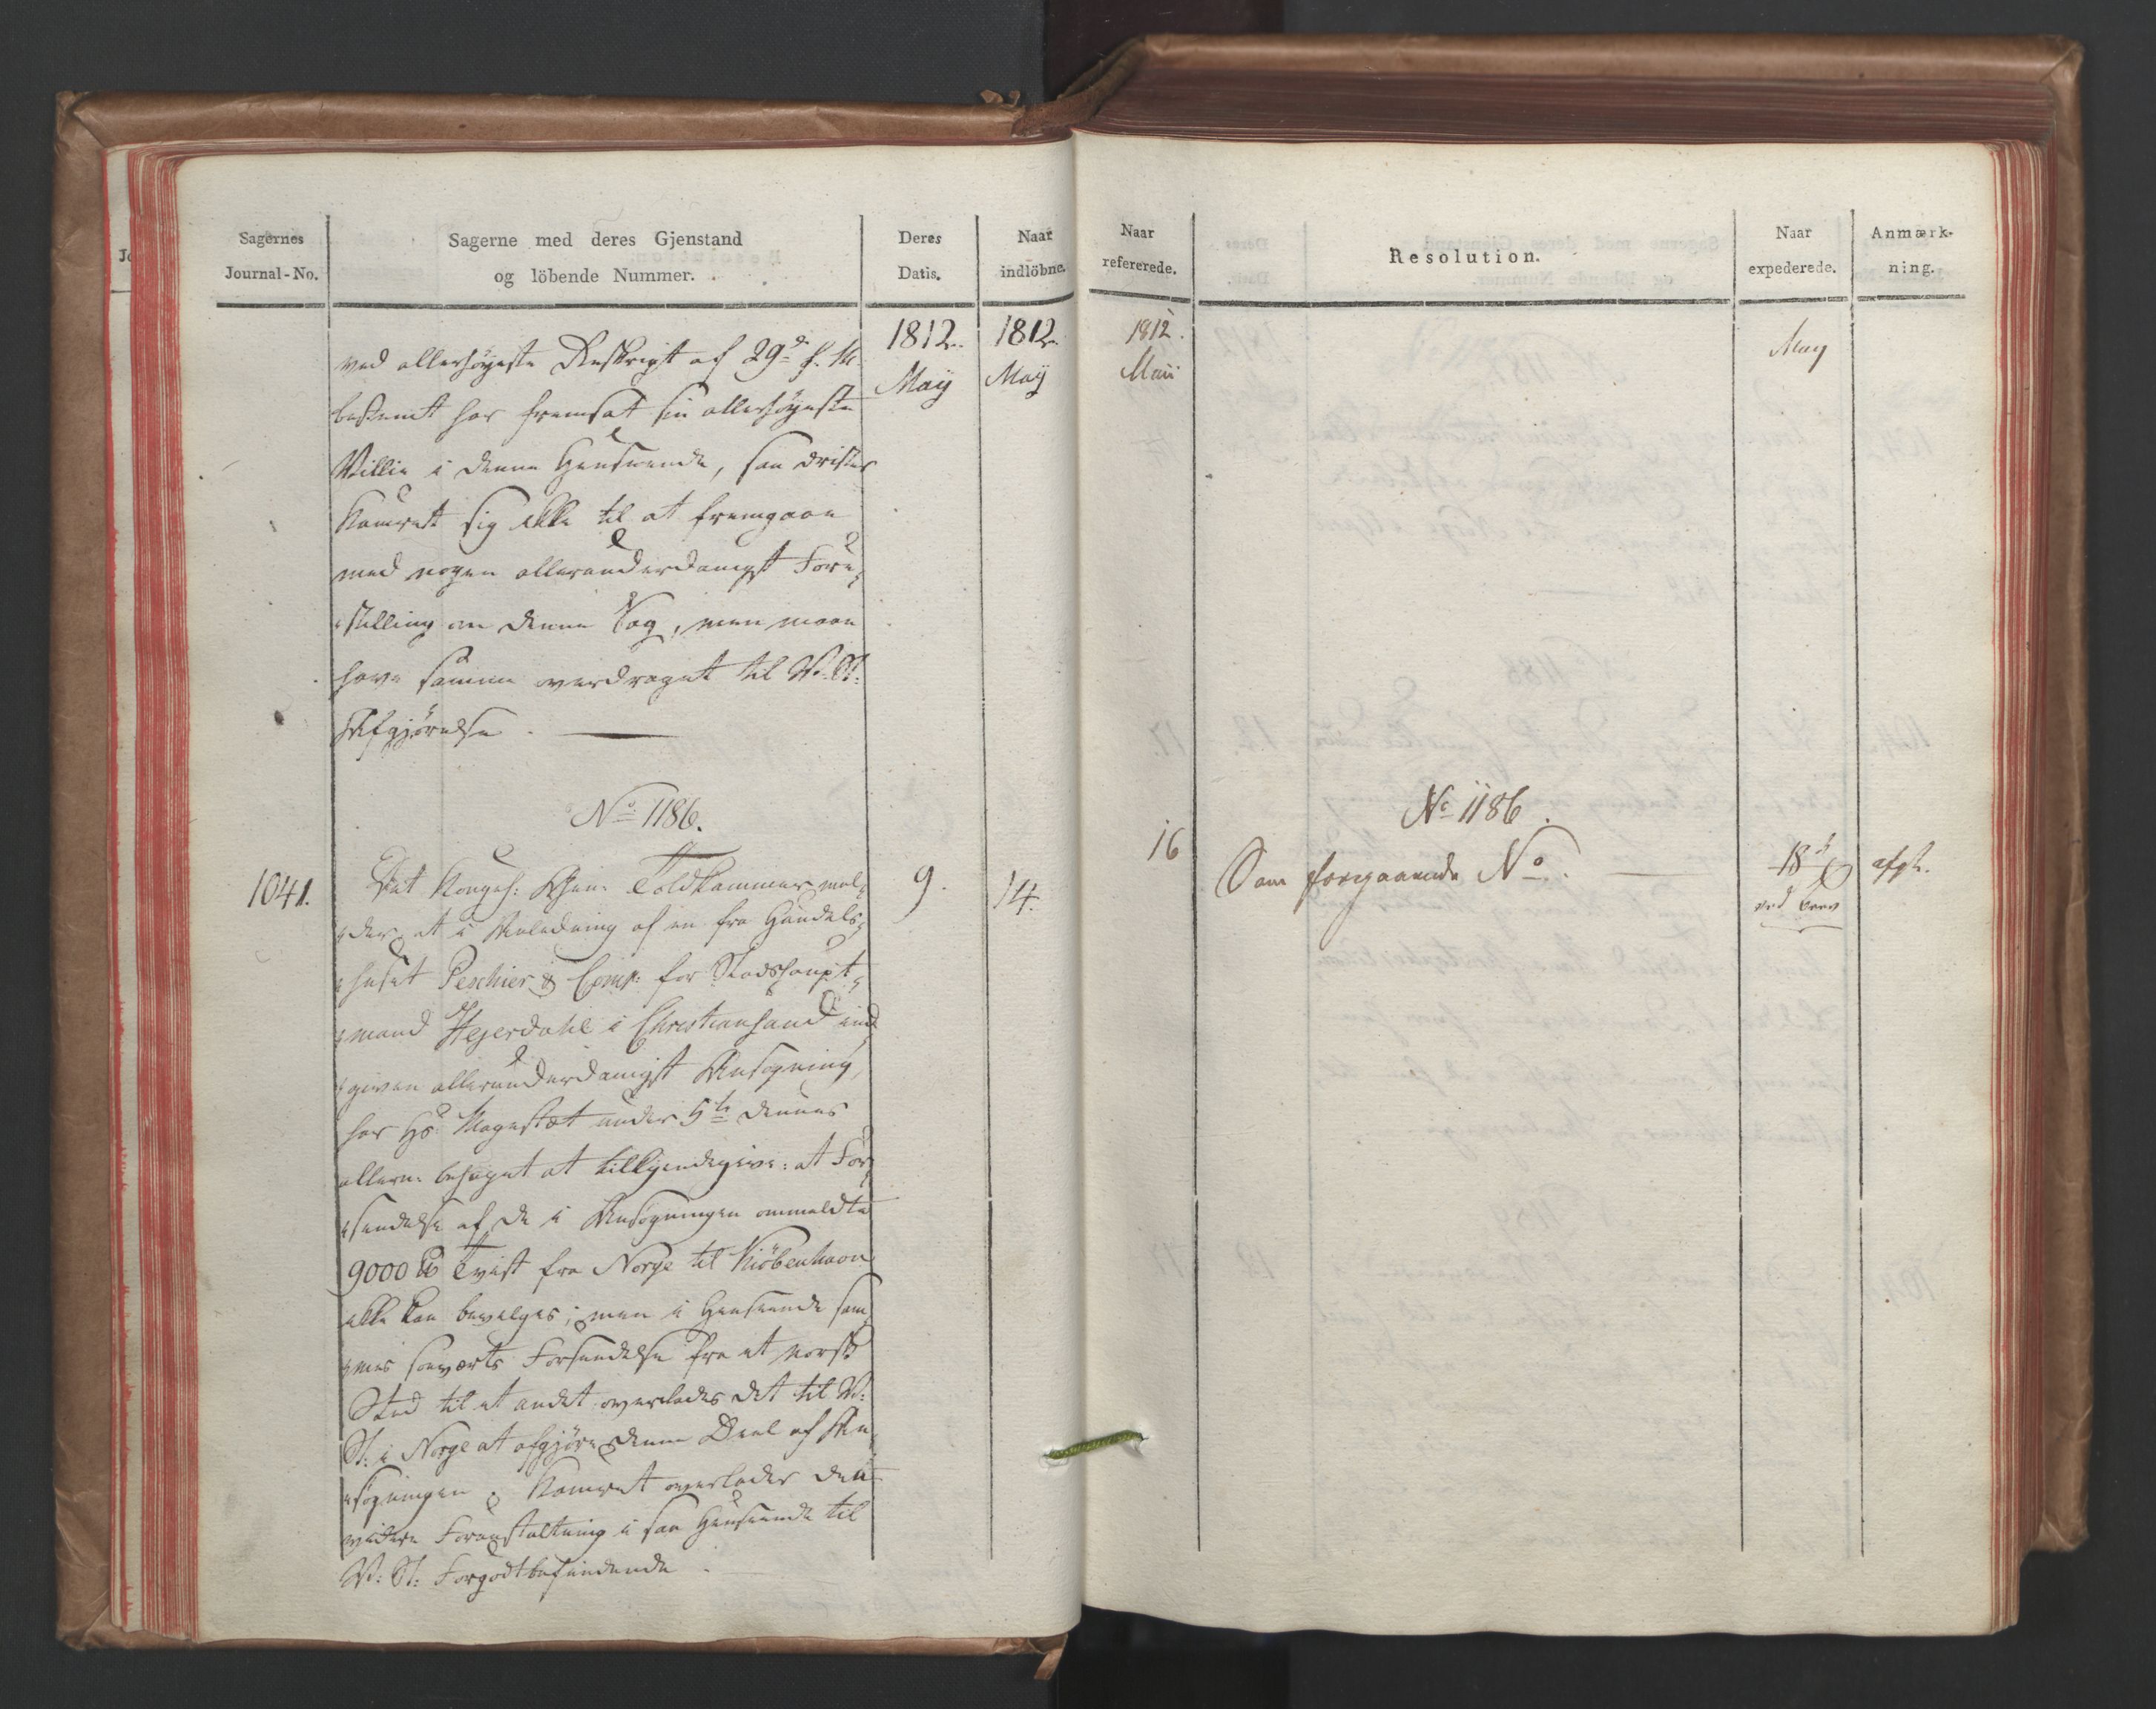 Sagernes
Journal-No.
Sagerne med deres Gjenstand
og löbende Nummer.
Deres
Datis.
Naar
indlöbne.
1812.
May
1812.
May
ved allerhøyeste Reskript af 29de f. M.
bestemt har fremsat sin allerhøyeste
Villie i denne Henseende, saa drister
Kamret sig ikke til at fremgaae
med nogen allerunderdanigst Fore-
stilling om denne Sag, men maae
have samme overdraget til V. St:
Afgjørelse.
No 1186.
1041.
9.
14.
Det Kongel: Gen: Toldkammer mel-
der, at i Anledning af en fra Handels-
huset Peschier & Comp: for Stadshaupt-
mand Hejerdahl i Christiansand ind-
given allerunderdanigst Ansøgning,
har Hs. Majestæt under 5te dennes
allern: behaget at tilkjendegive: at For-
sendelse af de i Ansøgningen ommeldte
9000 ℔ Tvist fra Norge til Kiöbenhavn
ikke kan bevilges; men i Henseende sam-
mes søeværts Forsendelse fra et norsk
Sted til et andet overlades det til V:
St: i Norge at afgjøre denne Deel af An-
søgningen. Kamret overlader den
videre Foranstaltning i saa Henseende til
V: St: Forgodtbefindende.
Naar
refererede.
Resolution.
Naar
expederede.
Anmærk-
ning.
1812.
Maii
May
No 1186.
16
Som foregaaende No.
18de
ved Brev
afgh.